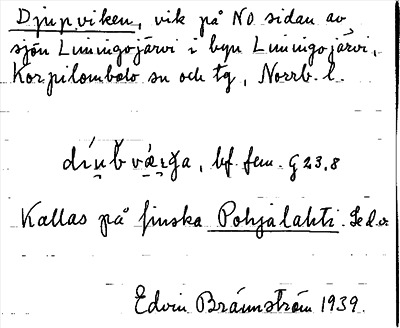 Djupviken, vik på NO sidan av
sjön Liviniingojärvi i byn Liviniingojärvi,
Korpilombolo sn och tg, Norrb. l.
bf. fem. G 23,8
Kallas på finska Pohjalahti. Se d.o.
Edvin Brännström 1939.